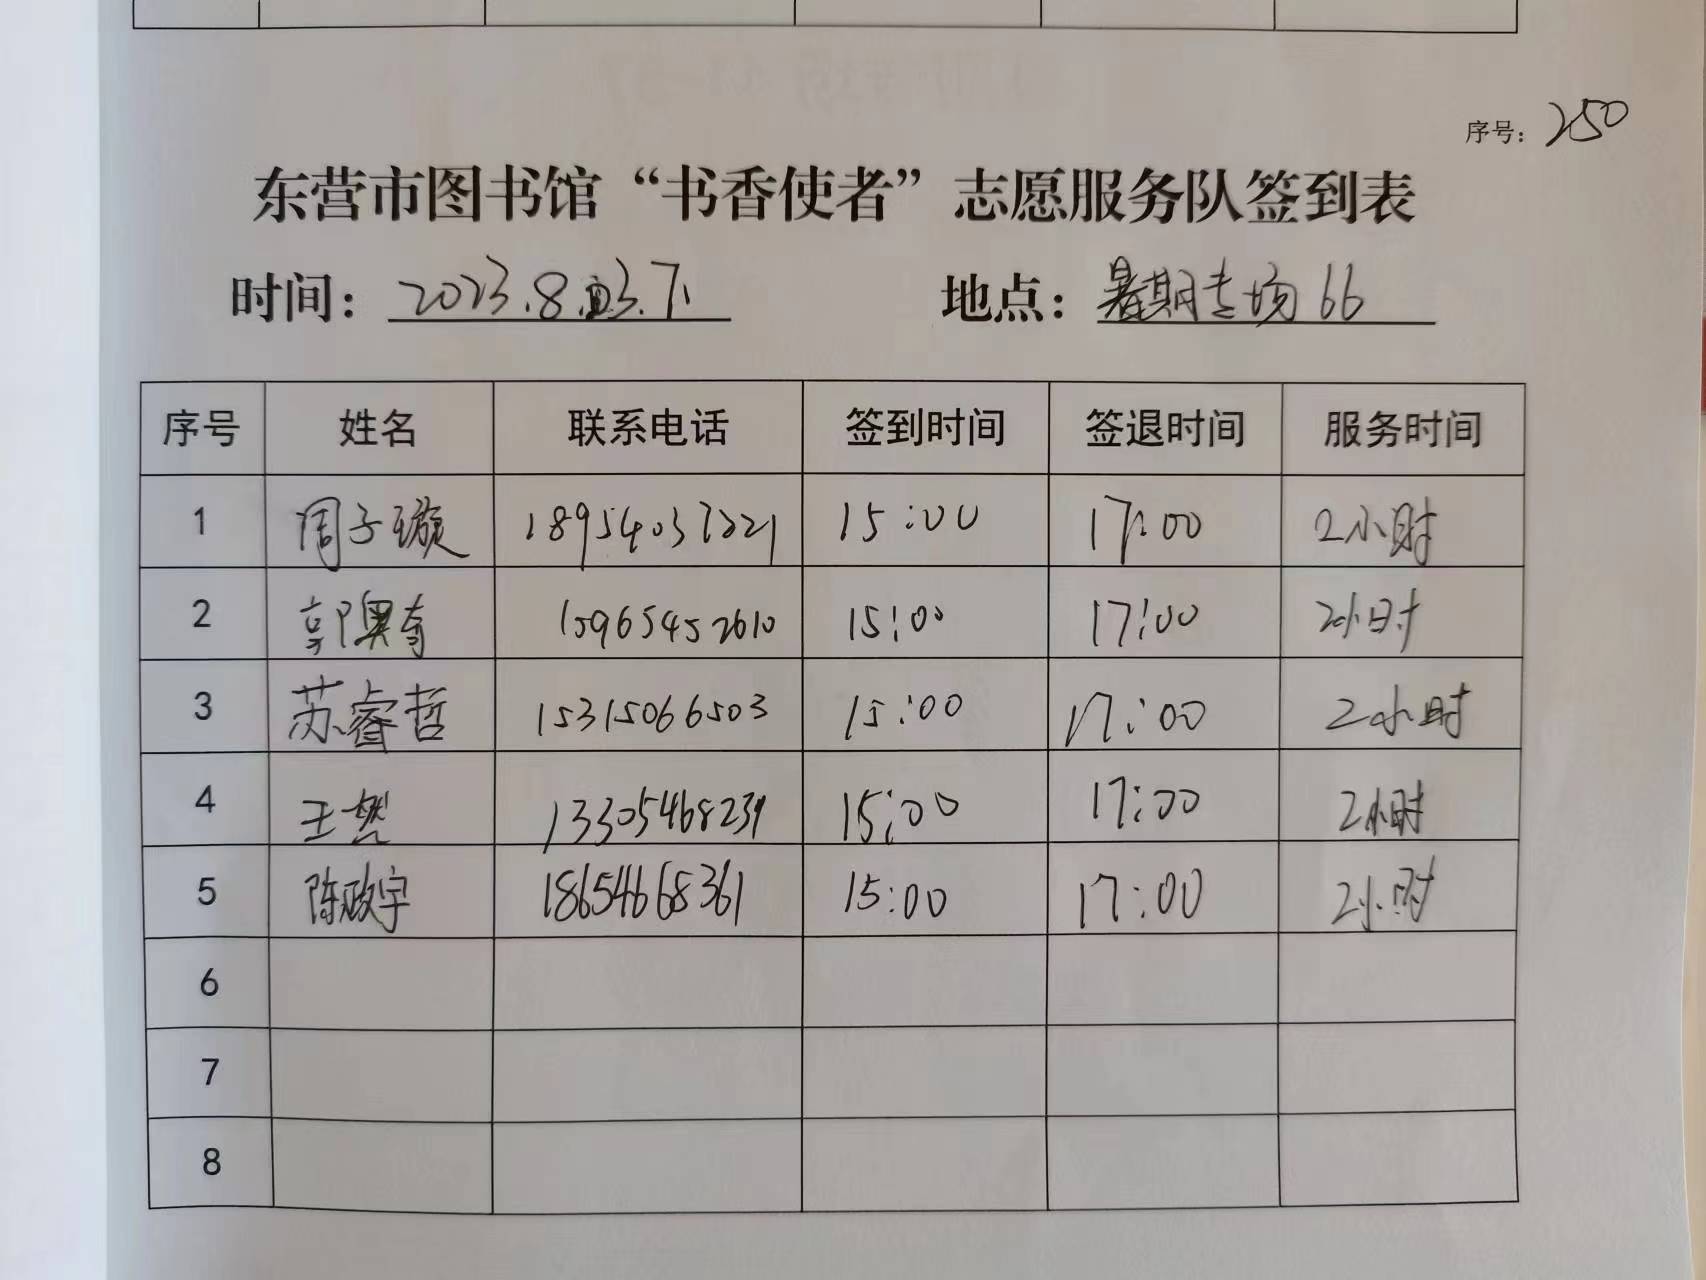 序号：250
东营市图书馆“书香使者”志愿服务队签到表
时间：2023.8.23.下 地点：暑期专场66
序号 姓名 联系电话 签到时间 签退时间 服务时间
1 周子璇 18954037221 15:00 17:00 2小时
2 郭奥奇 15965452610 15:00 17:00 2小时
3 苏睿哲 15315066503 15:00 17:00 2小时
4 王 13305468239 15:00 17:00 2小时
5 陈政宇 18654668361 15:00 17:00 2小时
6
7
8